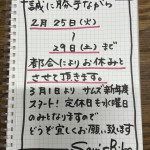 誠に勝手ながら
2月25日(火)
〜
29日(土)まで
都合によりお休みと
させて頂きます。
3月1日より サムズ新毎度
スタート! 定休日も水曜日
のみとなりますので
どうぞ宜しくお願い致します